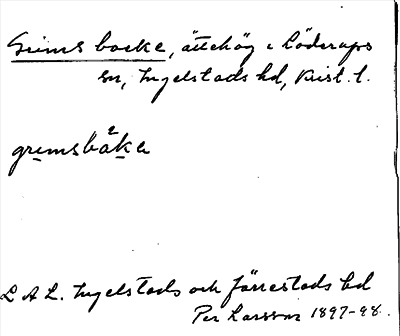 Grims backe, ättehög i Löderups
sn, Ingelstads hd, Krist. l.
grımsbåka
2
L A L. Ingelstads och Järrestads hd
Per Larsson 1897-98.